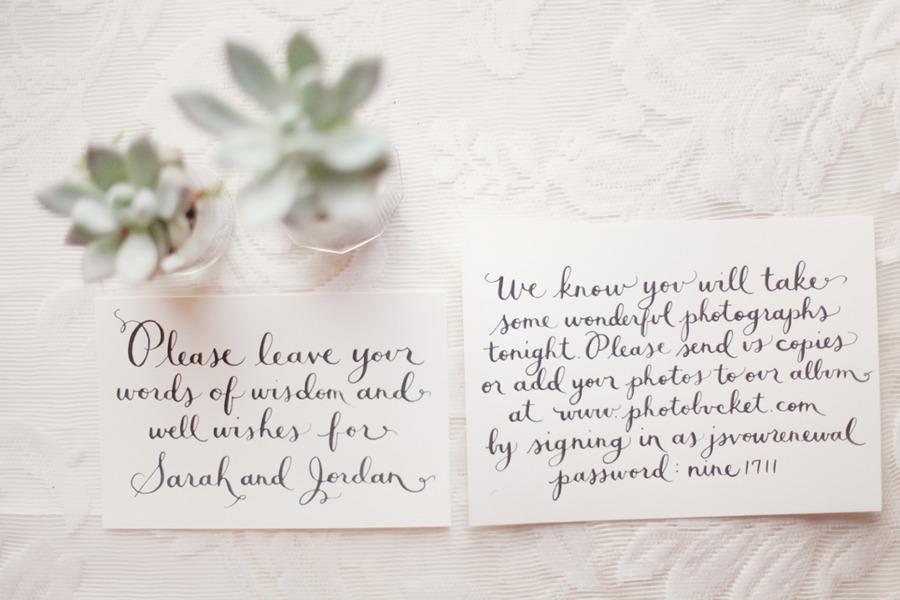 Please leave your
words of wisdom and
well wishes for
Sarah and Jordan
We know you will take
some wonderful photographs
tonight. Please send us copies
or add your photos to our album
at www.photobucket.com
by signing in as jsvowrenewal
password: nine1711